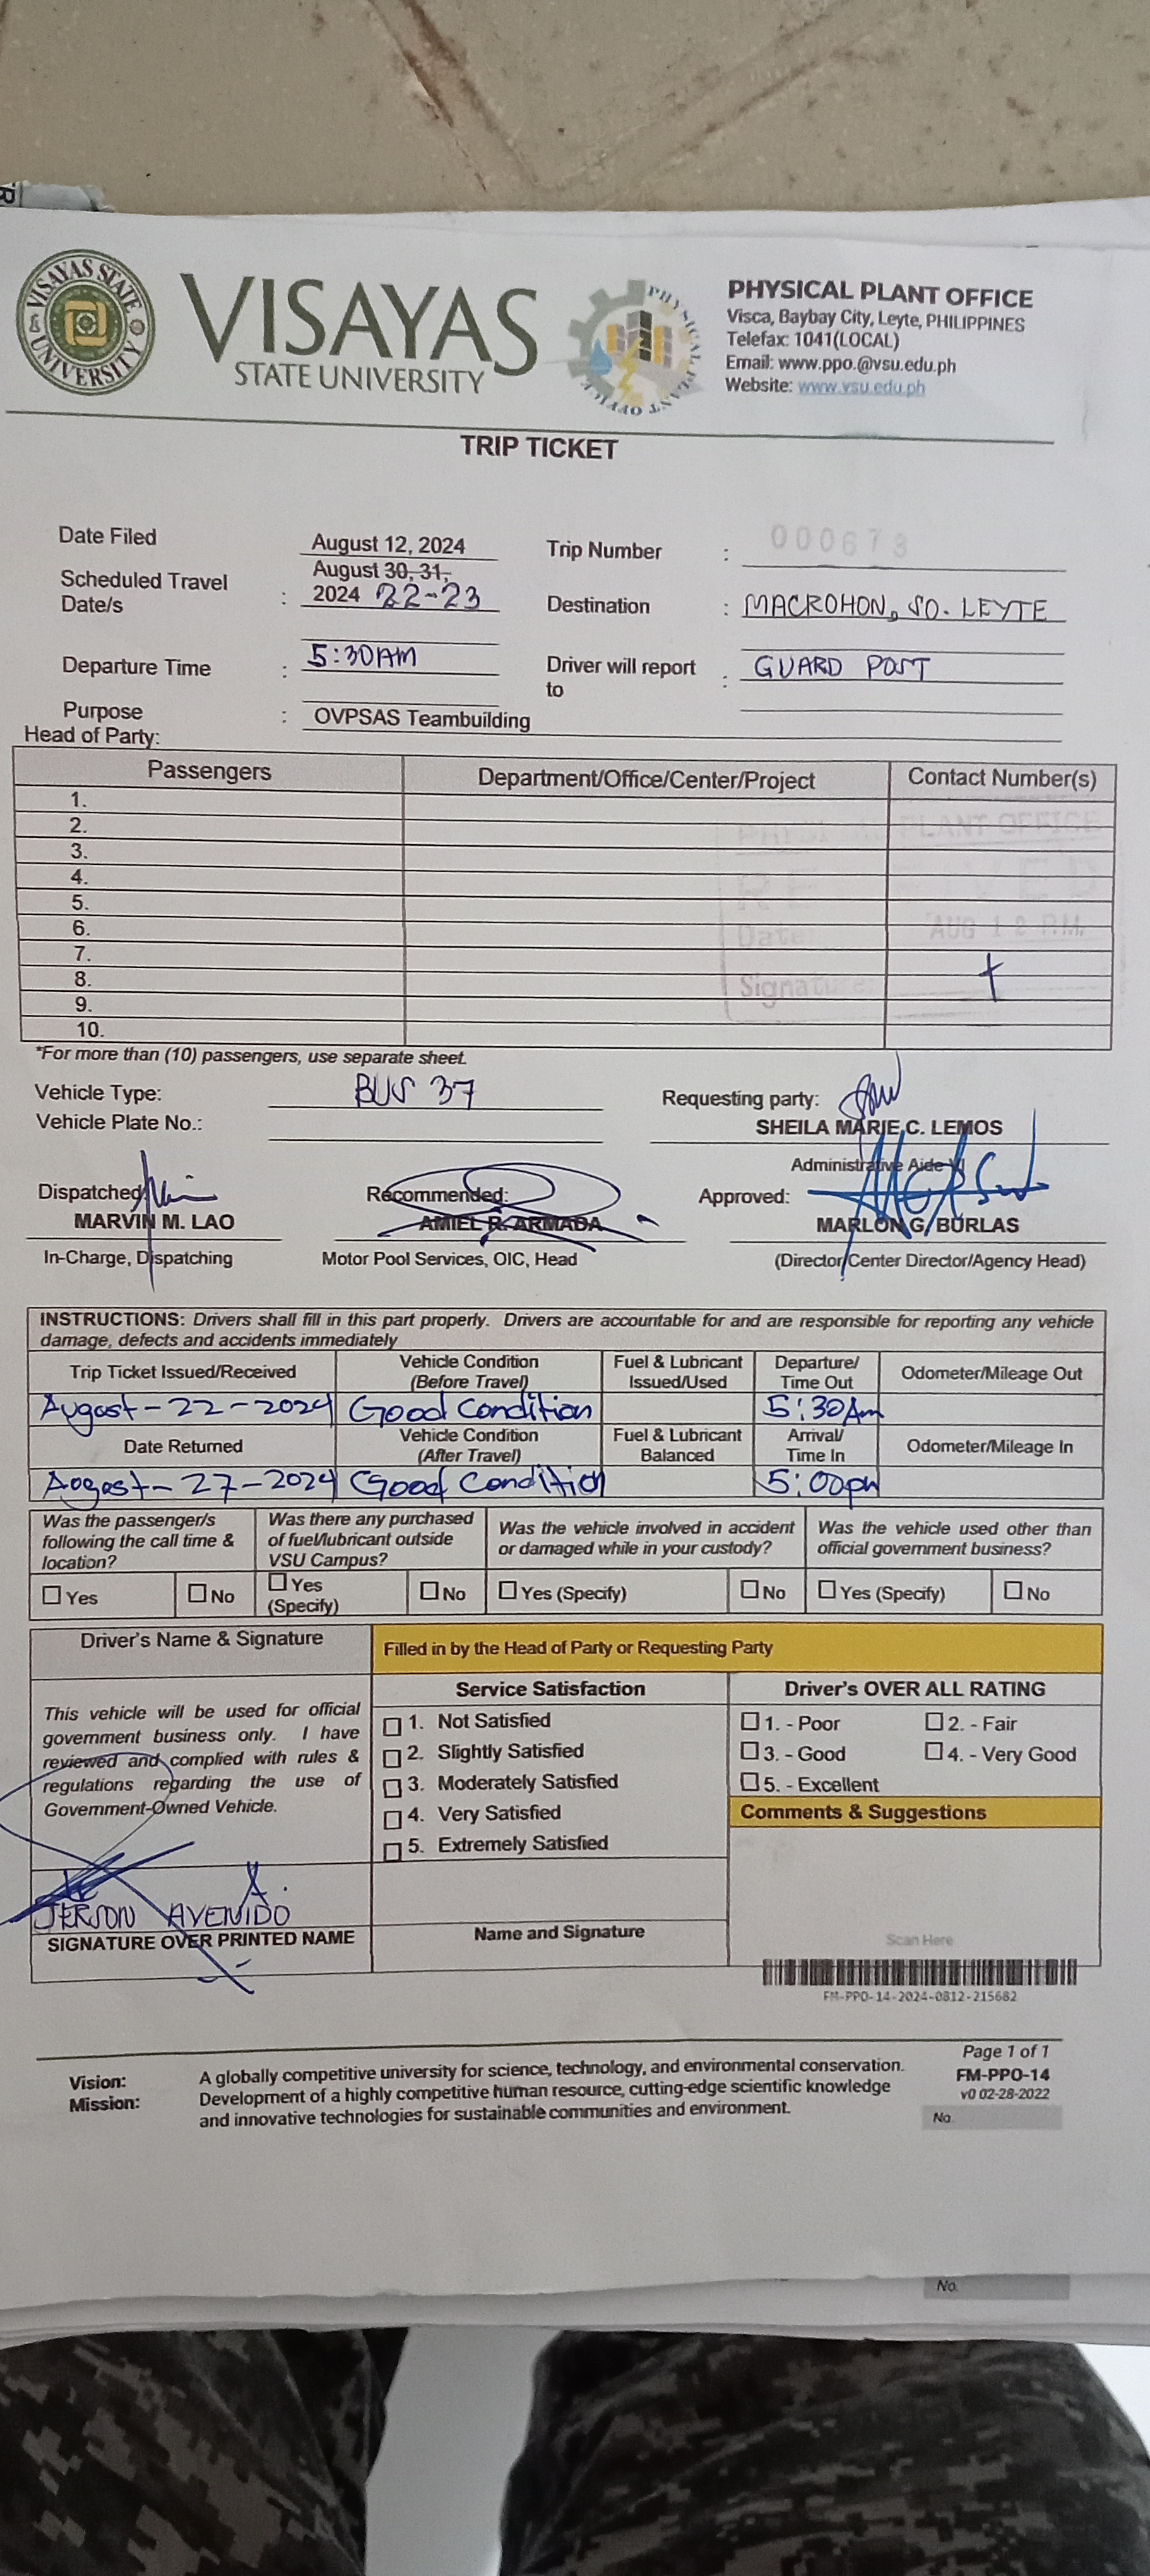 VISAYAS STATE UNIVERSITY
VISAYAS
STATE UNIVERSITY
PHYSICAL PLANT OFFICE
PHYSICAL PLANT OFFICE
Visca, Baybay City, Leyte, PHILIPPINES
Telefax: 1041(LOCAL)
Email: www.ppo.@vsu.edu.ph
Website: www.vsu.edu.ph
TRIP TICKET
Date Filed August 12, 2024 Trip Number : 000673
Scheduled Travel Date/s : August 30, 31, 2024 22-23 Destination : MACROHON, SO. LEYTE
Departure Time : 5:30AM Driver will report to : GUARD POST
Purpose : OVPSAS Teambuilding
Head of Party:
Passengers Department/Office/Center/Project Contact Number(s)
1.
2.
3.
4.
5.
6.
7.
8.
9.
10.
PLANT OFFICE
Date
AUG 12 P.M.
Signature
*For more than (10) passengers, use separate sheet.
Vehicle Type: BUS 37 Requesting party:
Vehicle Plate No.: SHEILA MARIE C. LEMOS
Administrative Aide VI
Dispatched Recommended: Approved:
MARVIN M. LAO AMIEL R. ARMADA MARLON G. BURLAS
In-Charge, Dispatching Motor Pool Services, OIC, Head (Director/Center Director/Agency Head)
INSTRUCTIONS: Drivers shall fill in this part properly. Drivers are accountable for and are responsible for reporting any vehicle
damage, defects and accidents immediately
Trip Ticket Issued/Received Vehicle Condition (Before Travel) Fuel & Lubricant Issued/Used Departure/ Time Out Odometer/Mileage Out
August-22-2024 Good Condition 5:30Am
Date Returned Vehicle Condition (After Travel) Fuel & Lubricant Balanced Arrival/ Time In Odometer/Mileage In
August-27-2024 Good Condition 5:00pm
Was the passenger/s following the call time & location? Was there any purchased of fuel/lubricant outside VSU Campus? Was the vehicle involved in accident or damaged while in your custody? Was the vehicle used other than official government business?
Yes No Yes (Specify) No Yes (Specify) No Yes (Specify) No
Driver's Name & Signature
Filled in by the Head of Party or Requesting Party
This vehicle will be used for official
government business only. I have
reviewed and complied with rules &
regulations regarding the use of
Government-Owned Vehicle.
JERSON A. AVENIDO
SIGNATURE OVER PRINTED NAME
Service Satisfaction
1. Not Satisfied
2. Slightly Satisfied
3. Moderately Satisfied
4. Very Satisfied
5. Extremely Satisfied
Name and Signature
Driver's OVER ALL RATING
1. - Poor 2. - Fair
3. - Good 4. - Very Good
5. - Excellent
Comments & Suggestions
Scan Here
FM-PPO-14-2024-0812-215682
Vision: A globally competitive university for science, technology, and environmental conservation.
Mission: Development of a highly competitive human resource, cutting-edge scientific knowledge
and innovative technologies for sustainable communities and environment.
Page 1 of 1
FM-PPO-14
v0 02-28-2022
No.
No.